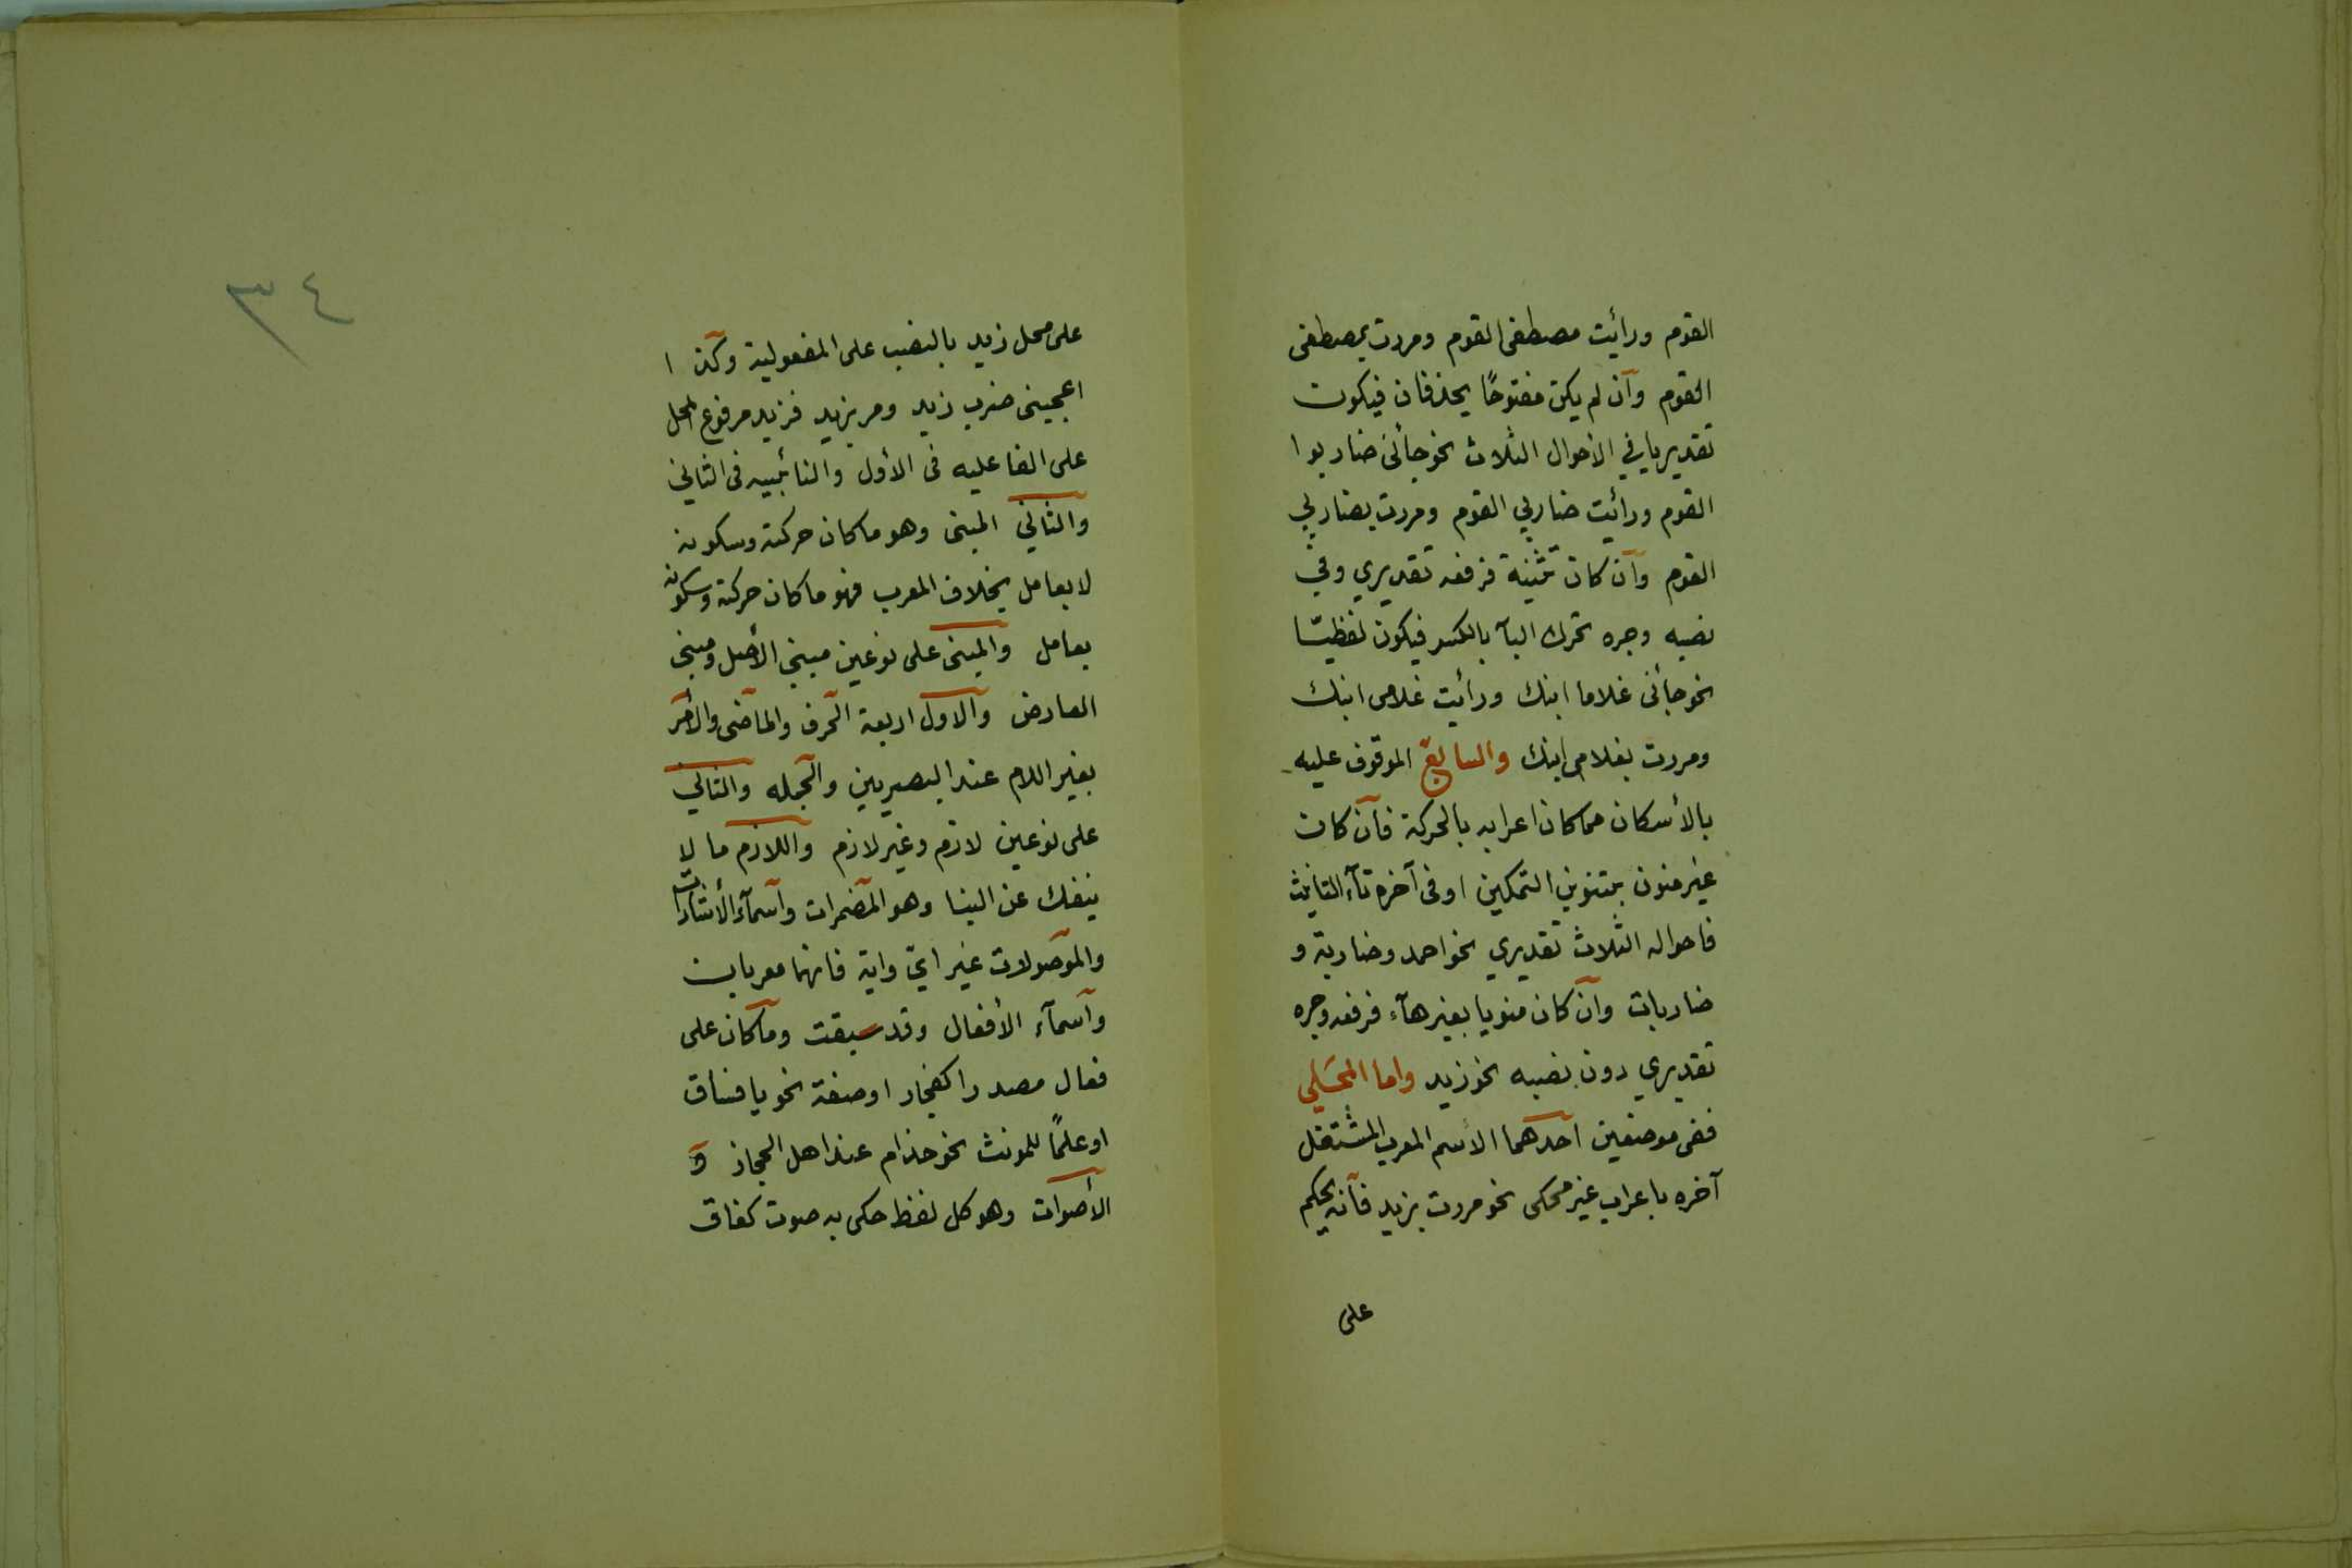 القوم ورأيت مصطفى القوم ومررت بمصطفى
القوم وان لم يكن مفتوحًا يحذفان فيكون
تقديريا في الاحوال الثلاث نحو جأنى ضاربوا
القوم ورأيت ضاربي القوم ومررت بضاربي
القوم وان كان تثنية فرفعه تقديري وفي
نصبه وجره تحرك اليآ بالكسر فيكون لفظيّا
نحو جأنى غلاما ابنك ورأيت غلامى ابنك
ومررت بغلامى ابنك والسابع الموقوف عليه
بالأسكان مما كان اعرابه بالحركة فان كان
غير منون بتنوين التمكين او فى آخره تآء التانيث
فاحواله الثلاث تقديري نحو احمد وضاربة و
ضاربات وان كان منويا بغيرهآء فرفعه وجره
تقديري دون نصبه نحو زيد واما المحَلي
ففى موضعين احدهما الأسم المعرب المشتغل
آخره باعراب غير محكى نحو مررت بزيد فانه يحكم
على
٣٤
على محل زيد بالنصب على المفعولية وكذا
اعجبنى ضرب زيد ومر بزيد فزيد مرفوع المحل
على الفاعليه فى الأول والنائبيه فى الثاني
والثاني المبنى وهو ما كان حركته وسكونه
لا بعامل بخلاف المعرب فهو ما كان حركته وسكونه
بعامل والمبنى على نوعين مبنى الأصل ومبنى
العارض والاول اربعة الحرف والماضى والأمر
بغير اللام عند البصريين والجمله والثاني
على نوعين لازم وغير لازم واللازم ما لا
ينفك عن البنا وهو المضمرات واسمآء الأشارات
والموصولات غير ايّ واية فانهما معربان
واسمآء الأفعال وقد سبقت وما كان على
فعال مصدرا كفجار او صفة نحو يا فساق
او علمًا للمونث نحو حذام عند اهل الحجاز و
الأصوات وهو كل لفظ حكى به صوت كغاق